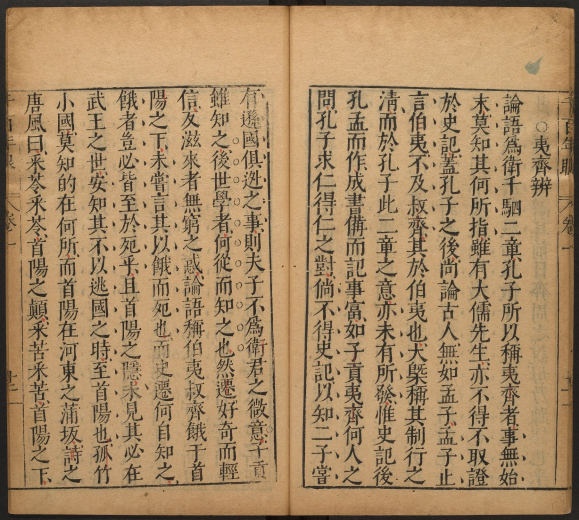 ○夷齊辨
論語爲衛千駟二章孔子所以稱夷齊者事無始
末莫知其何所指雖有大儒先生亦不得不取證
於史記蓋孔子之後尚論古人無如孟子孟子止
言伯夷不及叔齊其於伯夷也大槩稱其制行之
清而於孔子此二章之意亦未有所發惟史記後
孔孟而作成書備而記事富如子貢夷齊何人之
問孔子求仁得仁之對倘不得史記以知二子嘗
有遜國俱逃之事則夫子不爲衛君之微意子貢
雖知之後世學者何從而知之也然遷好奇而輕
信友滋來者無窮之惑論語稱伯夷叔齊餓于首
陽之下未嘗言其以餓而死也而史遷何自知之
餓者豈必皆至於死乎且首陽之隱未見其必在
武王之世安知其不以逃國之時至首陽也孤竹
小國莫知的在何所而首陽在河東之蒲坂詩之
唐風曰采苓采苓首陽之顛采苦采苦首陽之下
百年眼
卷一